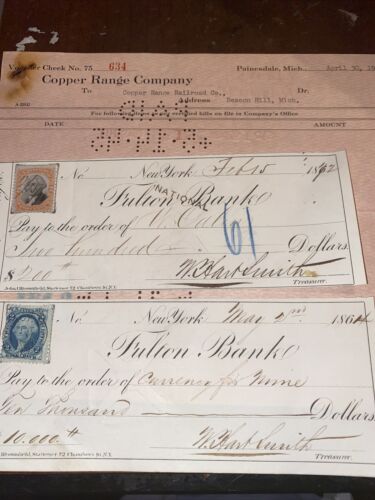 Voucher Check No. 75 634 Painesdale, Mich., April 30, 19
Copper Range Company
To Copper Range Railroad Co., Dr.
Address Beacon Hill, Mich.
A 2302
For following items as per certified bills on file in Company's Office
DATE AMOUNT
PAID
No New York Feb 15 1872
Fulton Bank
NATIONAL
Pay to the order of
Two hundred Dollars
61
$ 200.00 W. Hart Smith
Treasurer.
John J. Bloomfield, Stationer 72 Chambers St. N.Y.
No New York May 2nd 1864
Fulton Bank
Pay to the order of Currency for Mine
Ten Thousand Dollars
$ 10.000.00 W. Hart Smith
Bloomfield, Stationer 72 Chambers St. N.Y. Treasurer.